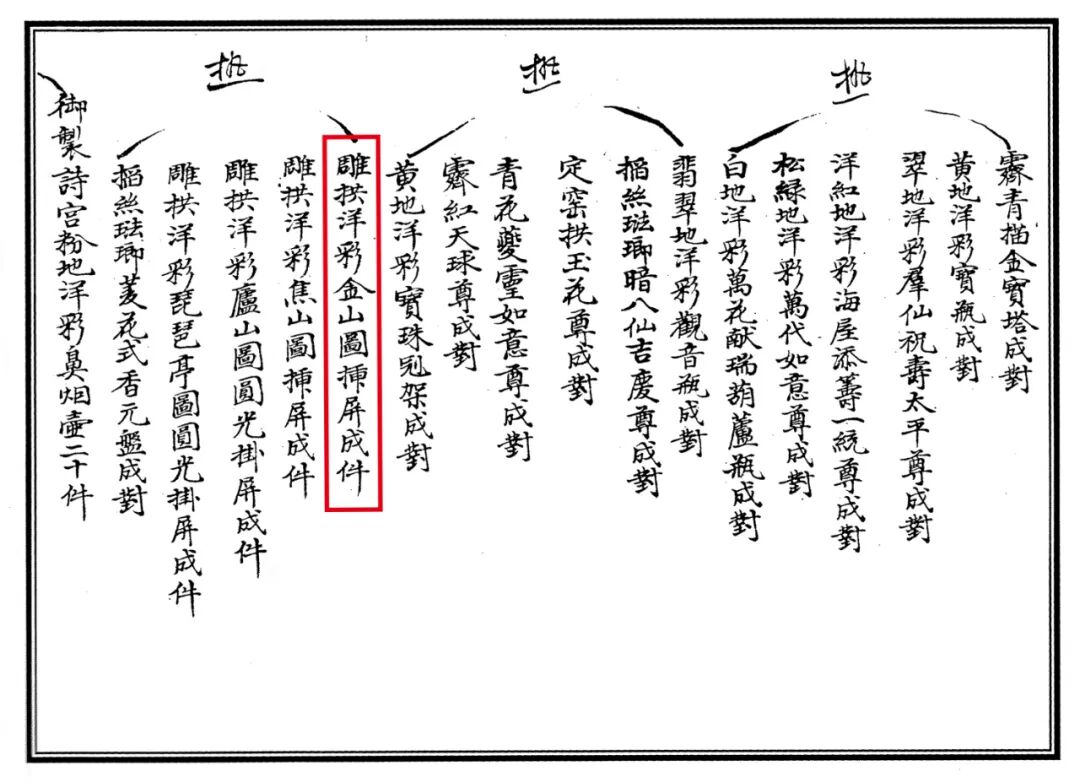 霽青描金寶塔成對
黃地洋彩寶瓶成對
翠地洋彩羣仙祝壽太平尊成對
挑
洋紅地洋彩海屋添籌一統尊成對
松綠地洋彩萬代如意尊成對
白地洋彩萬花献瑞葫蘆瓶成對
翡翠地洋彩觀音瓶成對
搯絲珐瑯暗八仙吉慶尊成對
定窑拱玉花尊成對
挑
青花夔靈如意尊成對
霽紅天球尊成對
黃地洋彩寶珠剋架成對
雕拱洋彩金山圖揷屏成件
雕拱洋彩焦山圖揷屏成件
挑
雕拱洋彩廬山圖圓光掛屏成件
雕拱洋彩琵琶亭圖圓光掛屏成件
搯絲珐瑯菱花式香元盤成對
御製詩宫粉地洋彩鼻烟壷二十件